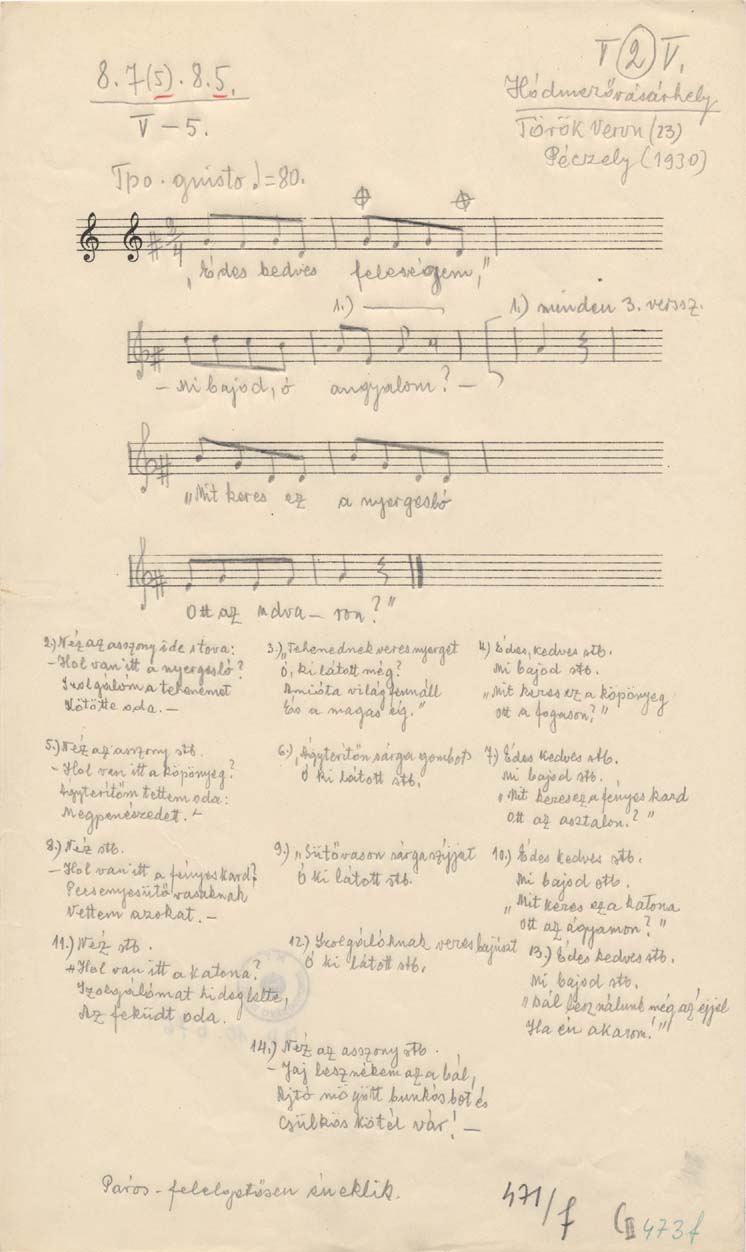 8.7(5).8.5.
V – 5.
V 2 V.
Hódmezővásárhely
Török Veron (23)
Péczely (1930)
Tpo. giusto ♩=80.
2/4
„Édes kedves feleségem,"
1.)
1.) minden 3. verssz.
– Mi bajod, ó angyalom? –
„Mit keres ez a nyergesló
Ott az udva – ron?"
2.) Néz az asszony ide s tova:
– Hol van itt a nyergesló?
Szolgálóm a tehenemet
Kötötte oda. –
3.) „Tehenednek veres nyerget
Ó, ki látott még?
Amióta világ fennáll
És a magas ég."
4.) Édes, kedves stb.
Mi bajod stb.
„Mit keres ez a köpönyeg
Ott a fogason?"
5.) Néz az asszony stb.
– Hol van itt a köpönyeg?
Ágyterítőm tettem oda:
Megpenészedett. –
6.) „Ágyterítőn sárga gombot
Ó ki látott stb.
7.) Édes kedves stb.
Mi bajod stb.
„Mit keres ez a fényes kard
Ott az asztalon?"
8.) Néz stb.
– Hol van itt a fényes kard?
Pecsenyesütő vasaknak
Vettem azokat. –
9.) „Sütővason sárga szíjjat
Ó ki látott stb.
10.) Édes kedves stb.
Mi bajod stb.
„Mit keres ez a katona
Ott az ágyamon?"
11.) Néz stb.
– Hol van itt a katona?
Szolgálómat hideg lelte,
Az feküdt oda.
12.) Szolgálóknak veres bajúszt
Ó ki látott stb.
13.) Édes kedves stb.
Mi bajod stb.
„Bál lesz nálunk még az éjjel
Ha én akarom!"
14.) Néz az asszony stb.
– Jaj lesz nékem az a bál,
Ajtó mögött bunkósbot és
Csülkös kötél vár! –
Páros-felelgetősen éneklik.
471/f
C II 473f